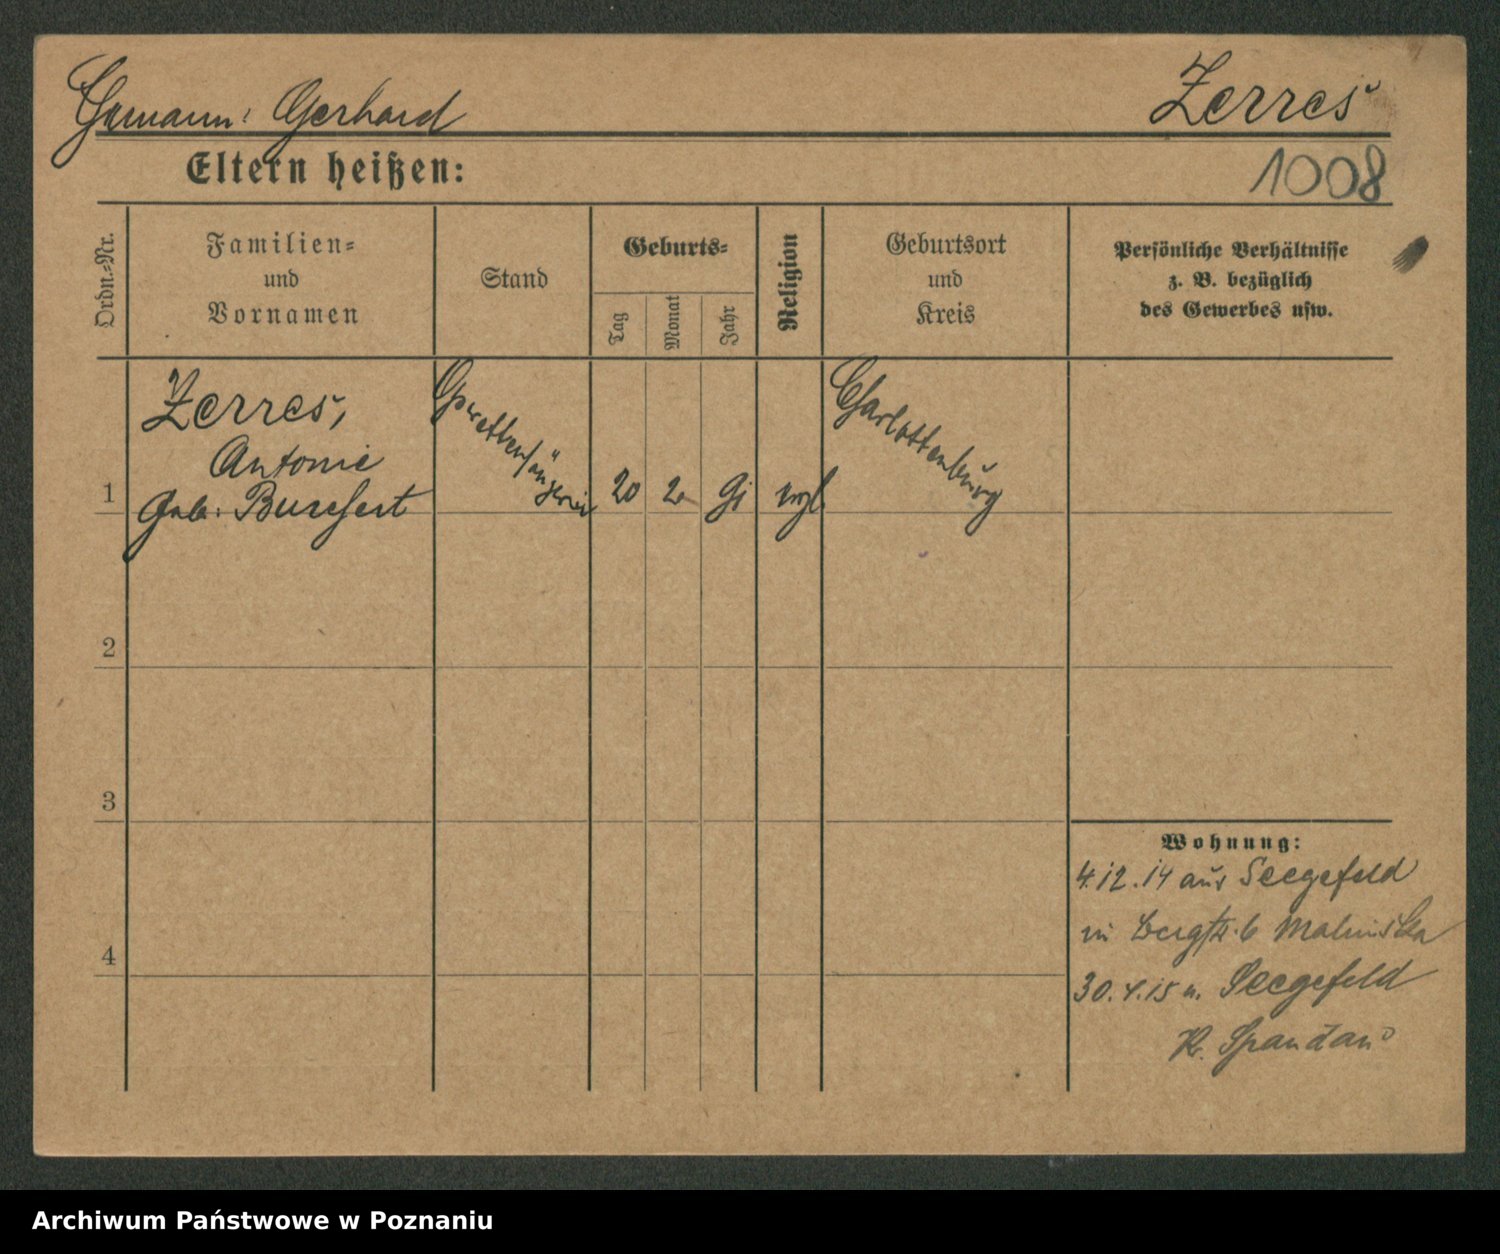 Ehemann: Gerhard Zerres
Eltern heißen:
1008
Ordn.=Nr.
Familien=
und
Vornamen
Stand
Geburts=
Tag
Monat
Jahr
Religion
Geburtsort
und
Kreis
Persönliche Verhältnisse
z. B. bezüglich
des Gewerbes usw.
Zerres,
Antonie
geb: Burchert
Operettensängerin
1
20 2
Charlottenburg
2
3
4
Wohnung:
4.12.14 aus Seegefeld
in Bergstr. 6
30.4.15 n. Seegefeld
Kr. Spandau
Archiwum Państwowe w Poznaniu